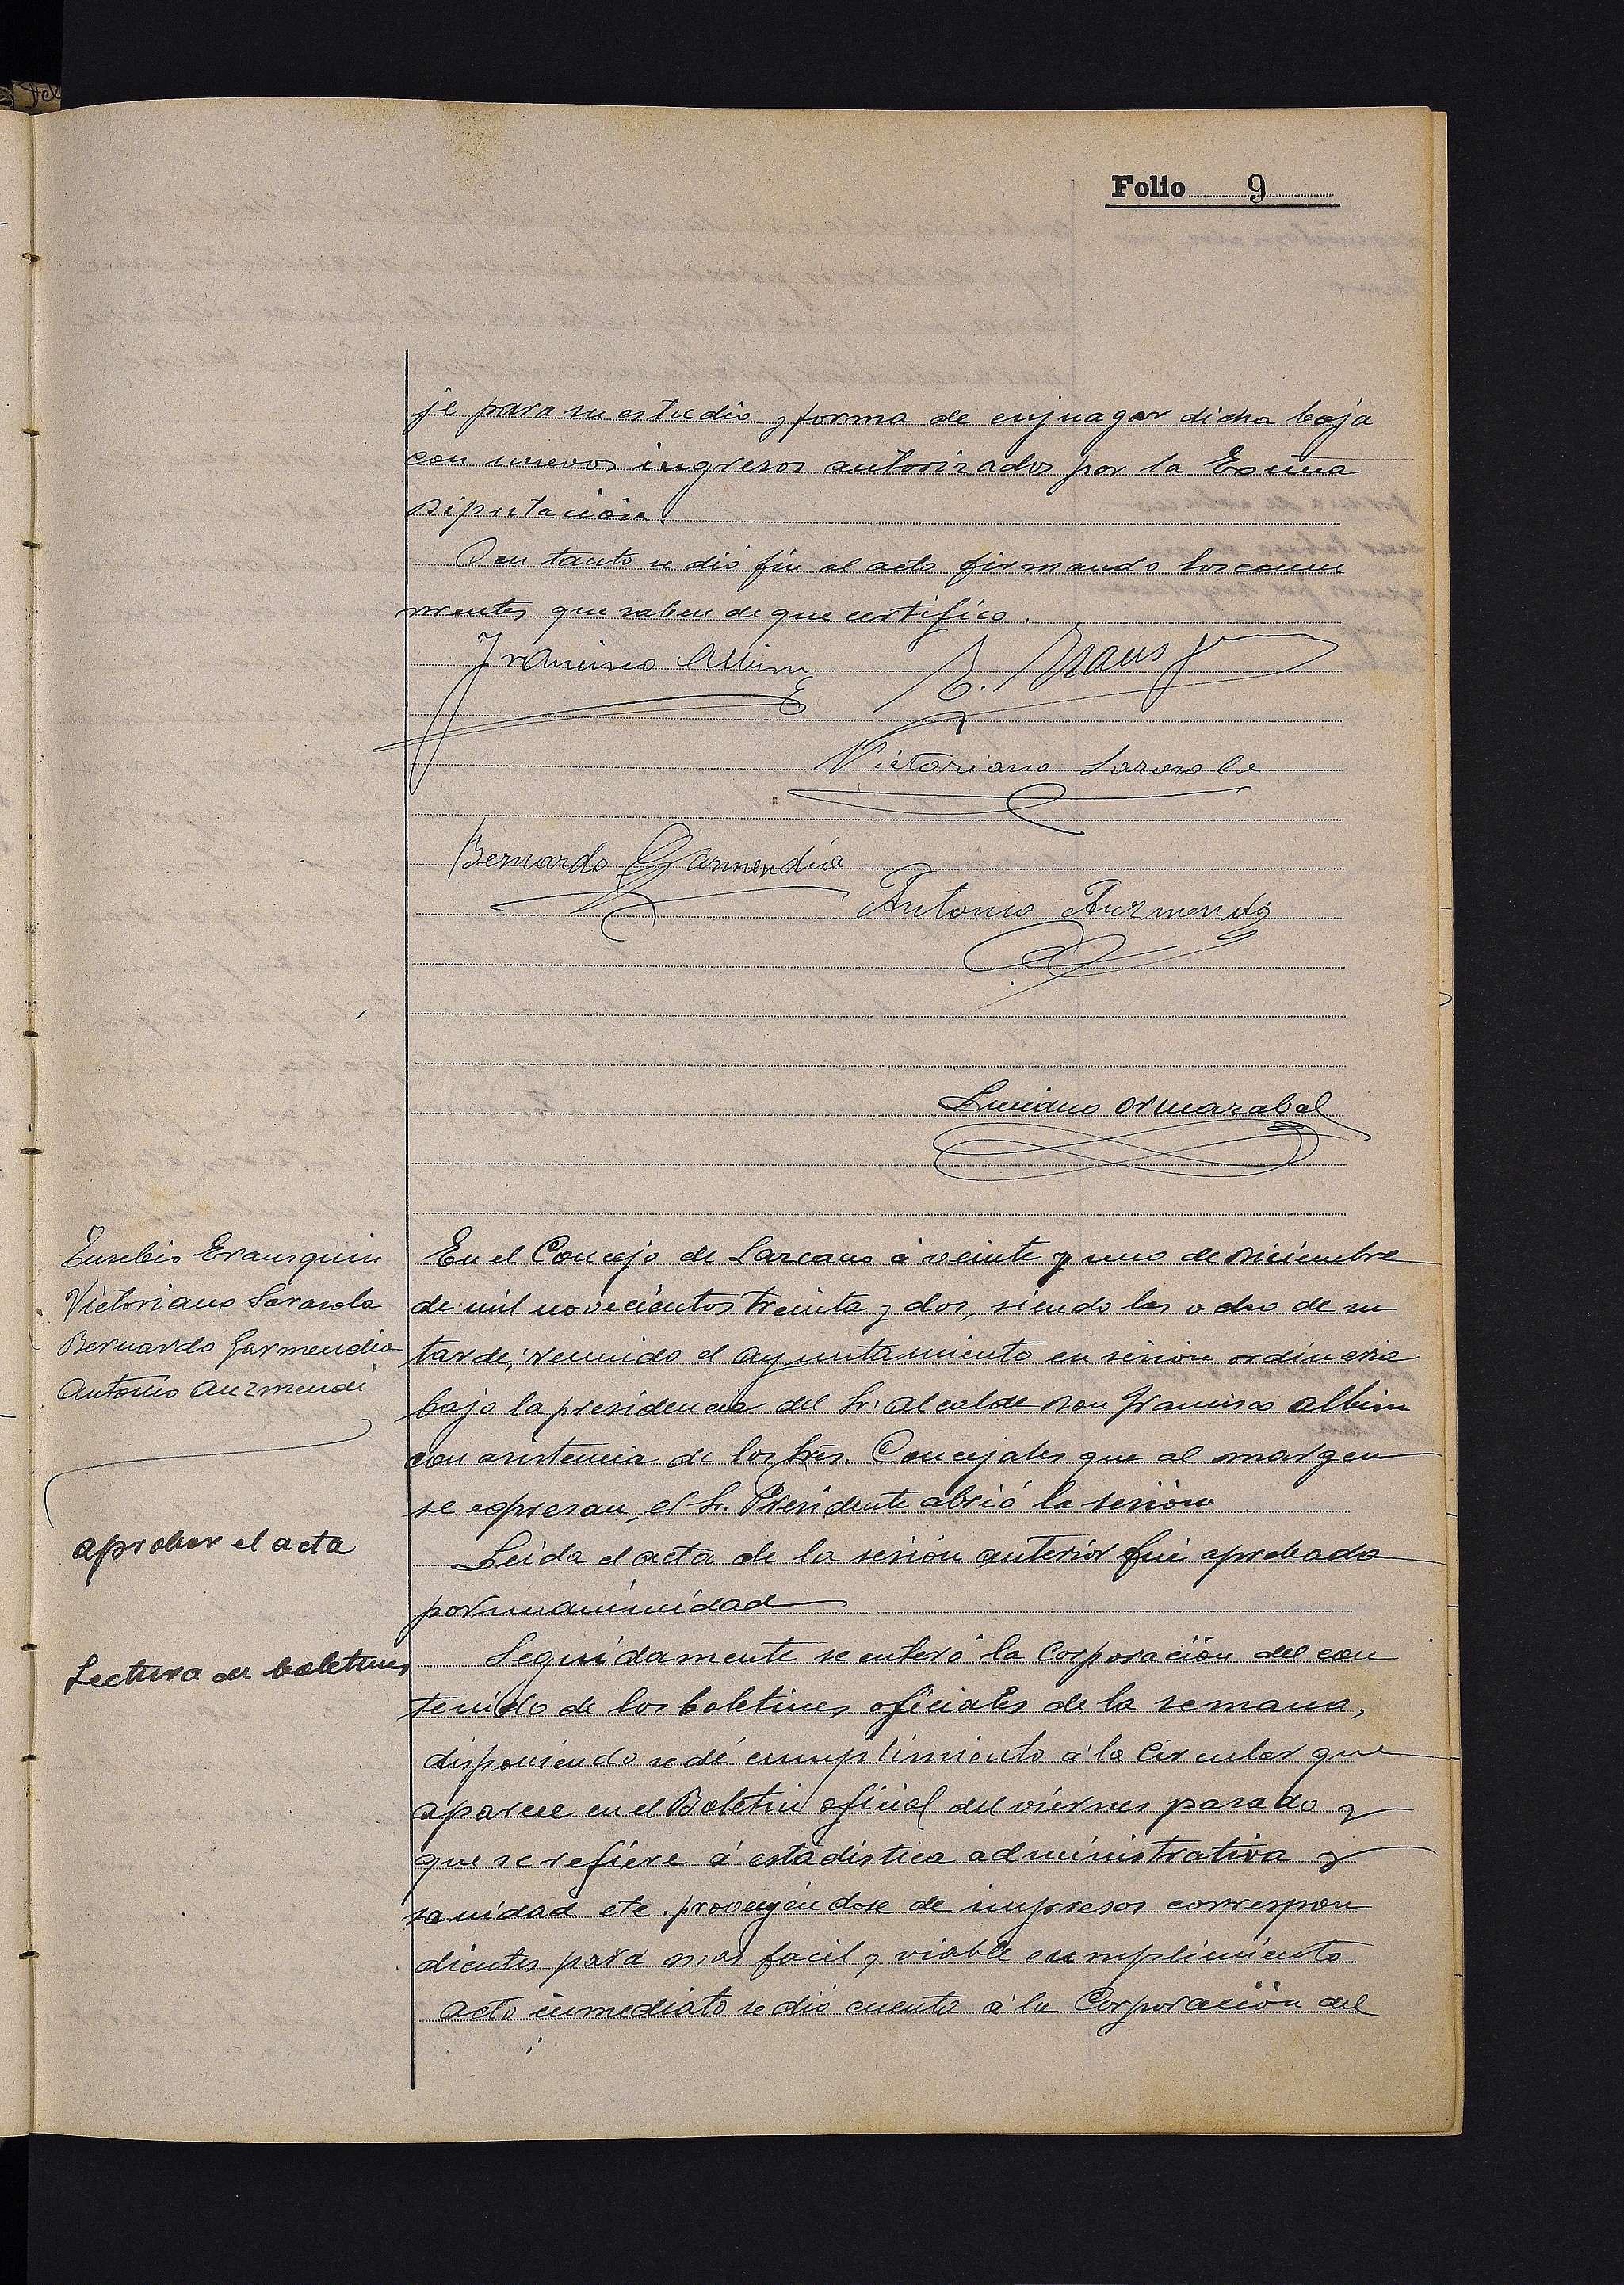 Folio 9
je para su estudio y forma de enjuagar dicha baja
con nuevos ingresos autorizados por la Exma
Diputación.
en tanto se dió fin al acto firmando los concu
rrentes que saben de que certifico.
Francisco Albisu
E. Erausq
Victoriano Sarasola
Bernardo Garmendia
Antonio Auzmendi
Luciano Ormazabal
Eusebio Erausquin
Victoriano Sarasola
Bernardo Garmendia
Antonio Auzmendi
En el Concejo de Lazcano á veinte y uno de Diciembre
de mil novecientos treinta y dos, siendo las ocho de su
tarde, reunido el ayuntamiento en sesion ordinaria
bajo la presidencia del Sr. alcalde Don Francisco Albisu
con asistencia de los Sres. Concejales que al margen
se expresan, el Sr. Presidente abrió la sesión
aprobar el acta
Leida el acta de la sesión anterior fué aprobada
por unanimidad
Lectura de boletines
Seguidamente se enteró la Corporación del con
tenido de los boletines oficiales de la semana,
disponiendo se dé cumplimiento á la Circular que
aparece en el Boletin oficial del viernes pasado y
que se refiere á estadistica administrativa y
sanidad etc. proveyéndose de impresos correspon
dientes para mas facil y viable cumplimiento
acto inmediato se dió cuenta á la Corporación del